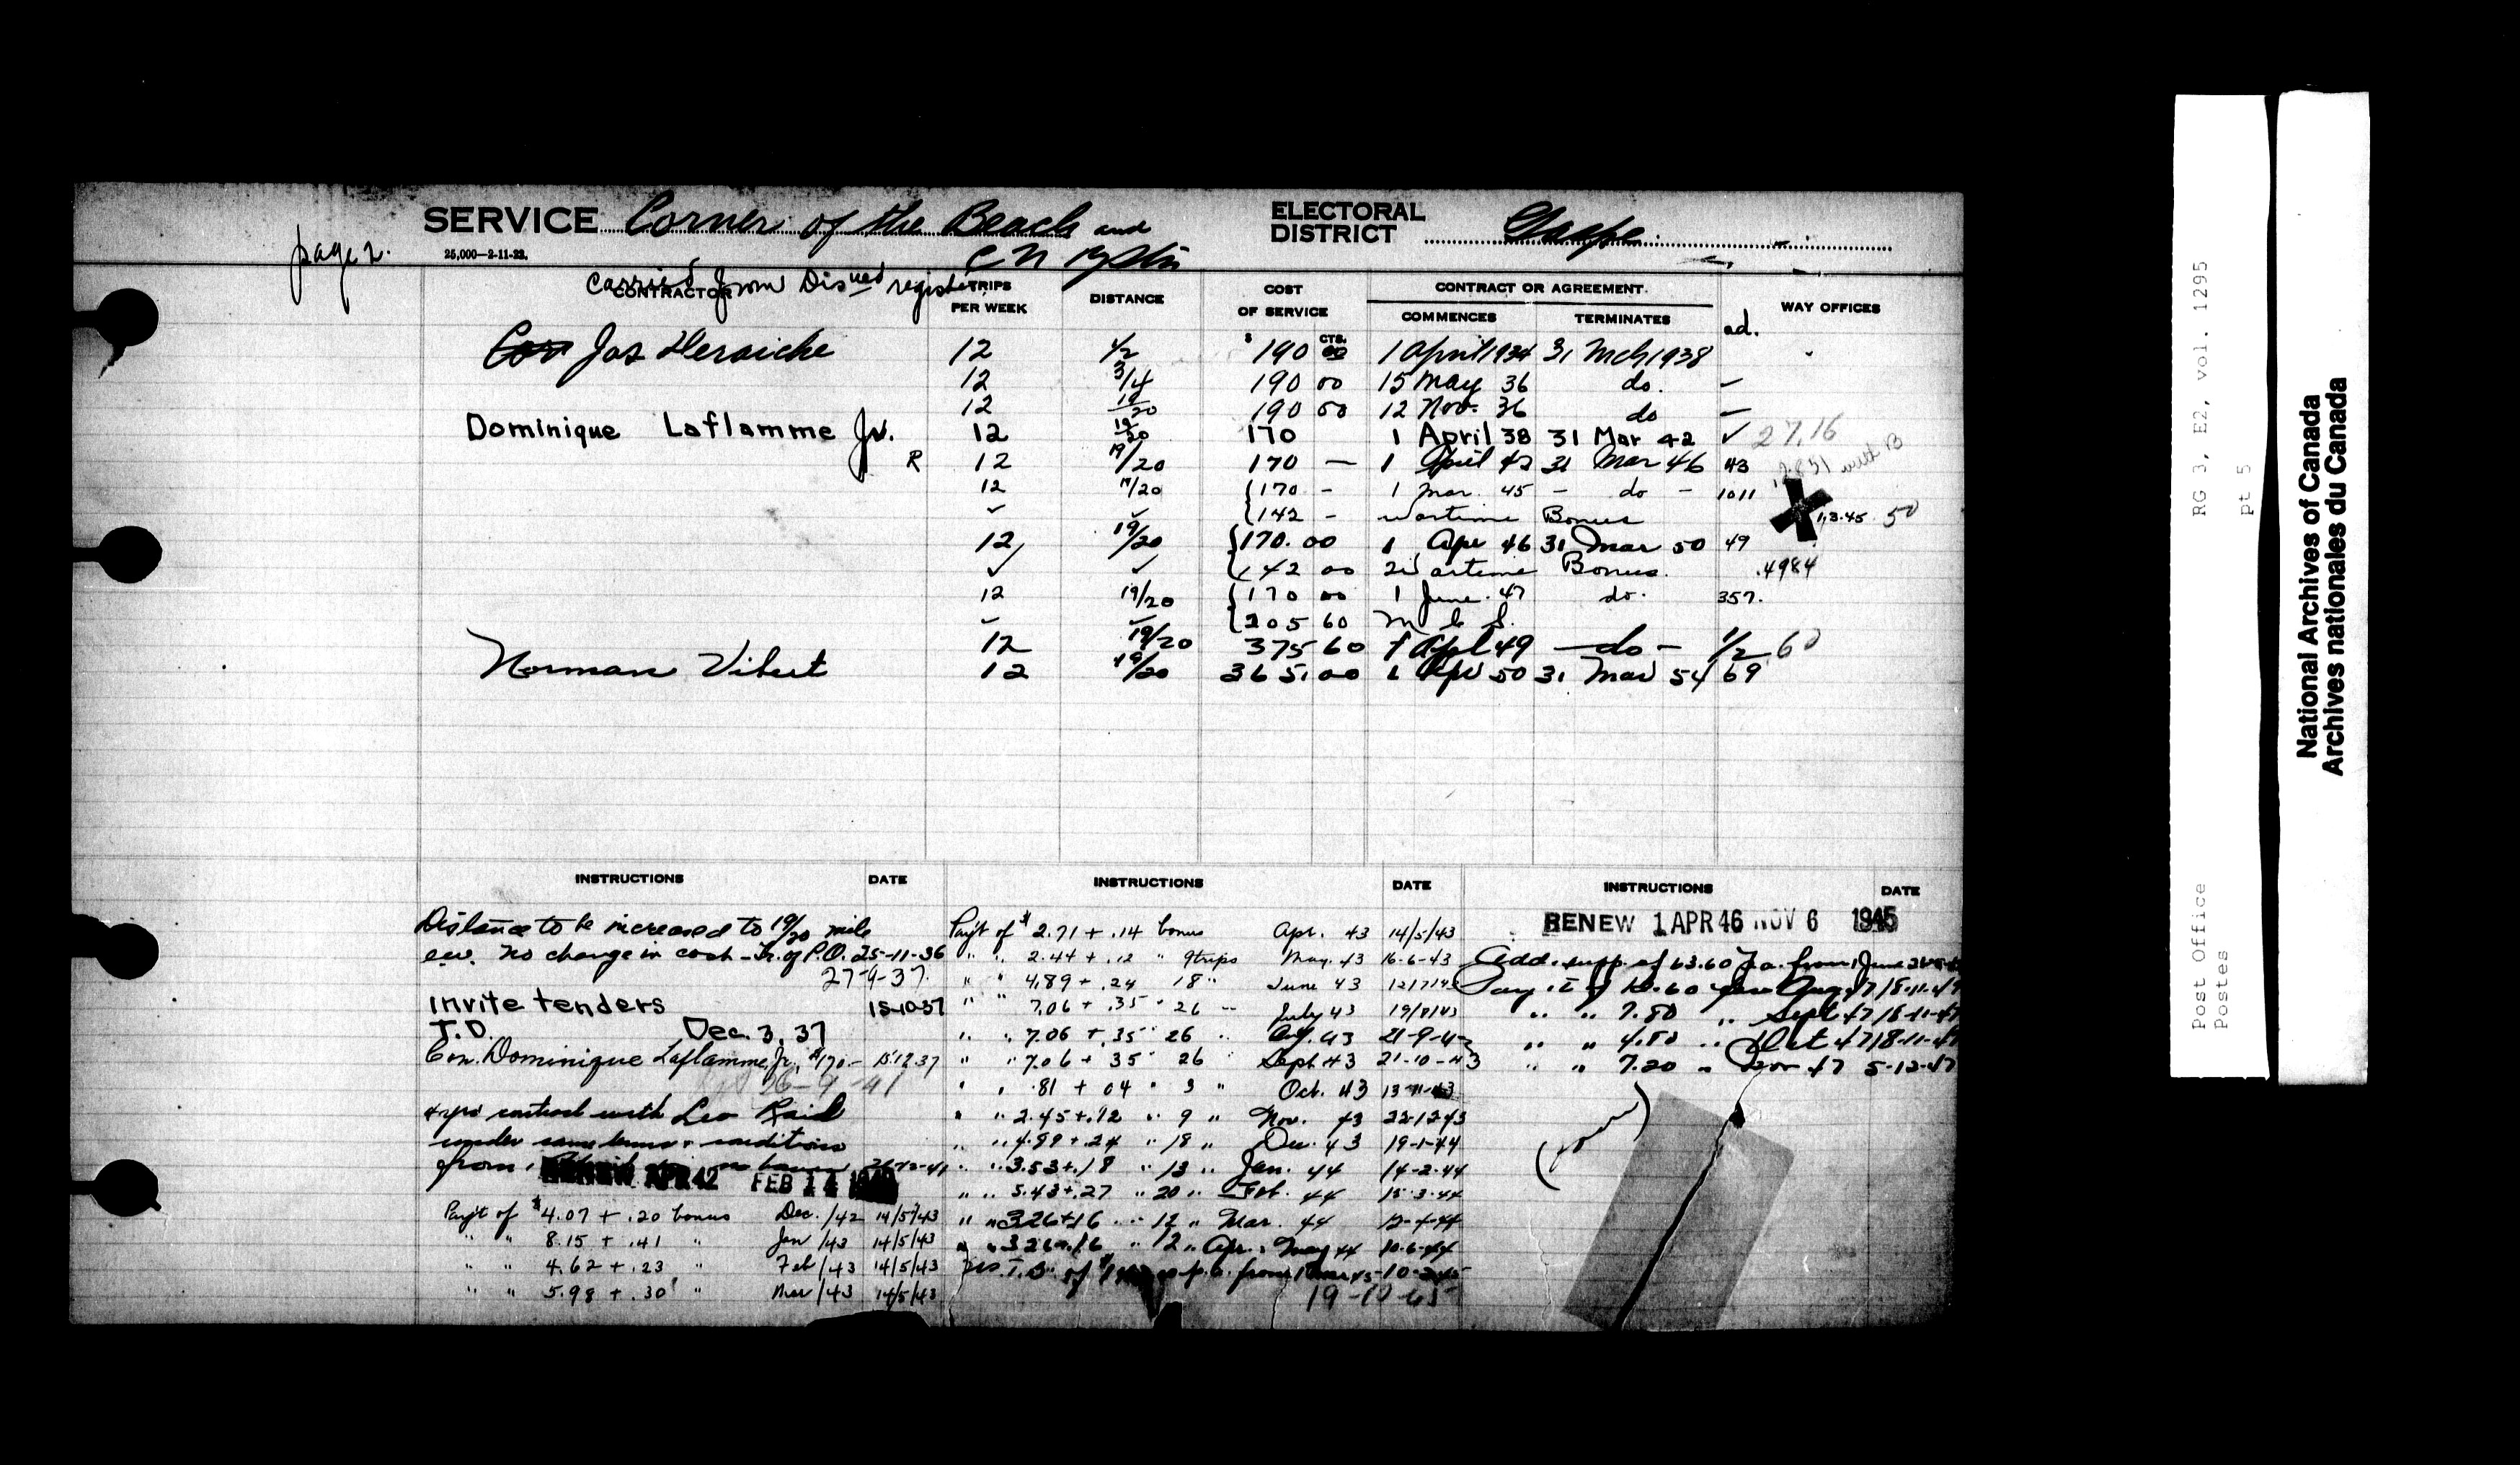 SERVICE Corner of the Beach and
C N Ry Stn
ELECTORAL DISTRICT Gaspe
page 2.
25,000—2-11-22.
Carried from Disued register
CONTRACTOR TRIPS PER WEEK DISTANCE COST OF SERVICE CONTRACT OR AGREEMENT. COMMENCES TERMINATES WAY OFFICES
$ CTS. ad.
Jos 12 1/2 190 00 1 April 1934 31 Mch 1938
12 3/4 190 00 15 May 36 do. —
12 19/20 190 00 12 Nov. 36 do —
Dominique Laflamme Jr. 12 19/20 170 1 April 38 31 Mar 42 ✓ 27.16
R 12 19/20 170 — 1 April 42 31 Mar 46 43
12 19/20 {170 - 1 Mar. 45 - do - 1011
✓ ✓ {142 - wartime Bonus 1.3.45 50
12 19/20 {170.00 1 Apr 46 31 Mar 50 49
✓ ✓ {142 00 Wartime Bonus. .4984
12 19/20 {170 00 1 June. 47 do. 357.
{205 60
12 19/20 375 60 1 Apl 49 — do — 1/2 .60
Norman Vibert 12 19/20 365.00 1 Apr 50 31 Mar 54 69
INSTRUCTIONS DATE
Distance to be increased to 19/20 mile
ew. No change in cost - Tr. of P.O. 25-11-36
27-9-37.
Invite tenders 15-10-37
T.D. Dec. 3, 37
Con. Dominique Laflamme, Jr., $170.- 15.12.37
26-9-41
4 yrs contract with Leo
under same terms & conditions
from
RENEW APR 42 FEB 14
Pay't of $4.07 + .20 bonus Dec. /42 14/5/43
" " 8.15 + .41 " Jan /43 14/5/43
" " 4.62 + .23 " Feb /43 14/5/43
" " 5.98 + .30 " Mar /43 14/5/43
INSTRUCTIONS DATE
Pay't of $2.71 + .14 bonus Apr. 43 14/5/43
" " 2.44 + .12 " 9 trips May. 43 16-6-43
" " 4.89 + .24 18 " June 43 12/7/43
" " 7.06 + .35 " 26 " July 43 19/8/43
" " 7.06 + .35 " 26 " Aug. 43 21-9-43
" " 7.06 + 35 " 26 Sept 43 21-10-43
" " .81 + 04 " 3 " Oct. 43 13-11-43
" " 2.45 + .12 " 9 " Nov. 43 22-12-43
" " 4.89 + .24 " 18 " Dec. 43 19-1-44
" " 3.53 + .18 " 13 " Jan. 44 14-2-44
" " 5.43 + .27 " 20 " Feb. 44 15-3-44
" " 3.26 + 16 " 12 " Mar. 44 12-4-44
" " 3.26 + .16 " 12 " Apr. & May 44 10-6-44
19-10-45
INSTRUCTIONS DATE
RENEW 1 APR 46 NOV 6 1945
Add. supp. of 63.60 p.a. from 1 June
" " 7.80 " Sept 47 18-11-47
" " 4.80 " Oct 47 18-11-47
" " 7.20 " Nov 47 5-12-47
Post Office RG 3, E2, vol. 1295
Postes pt 5
National Archives of Canada
Archives nationales du Canada